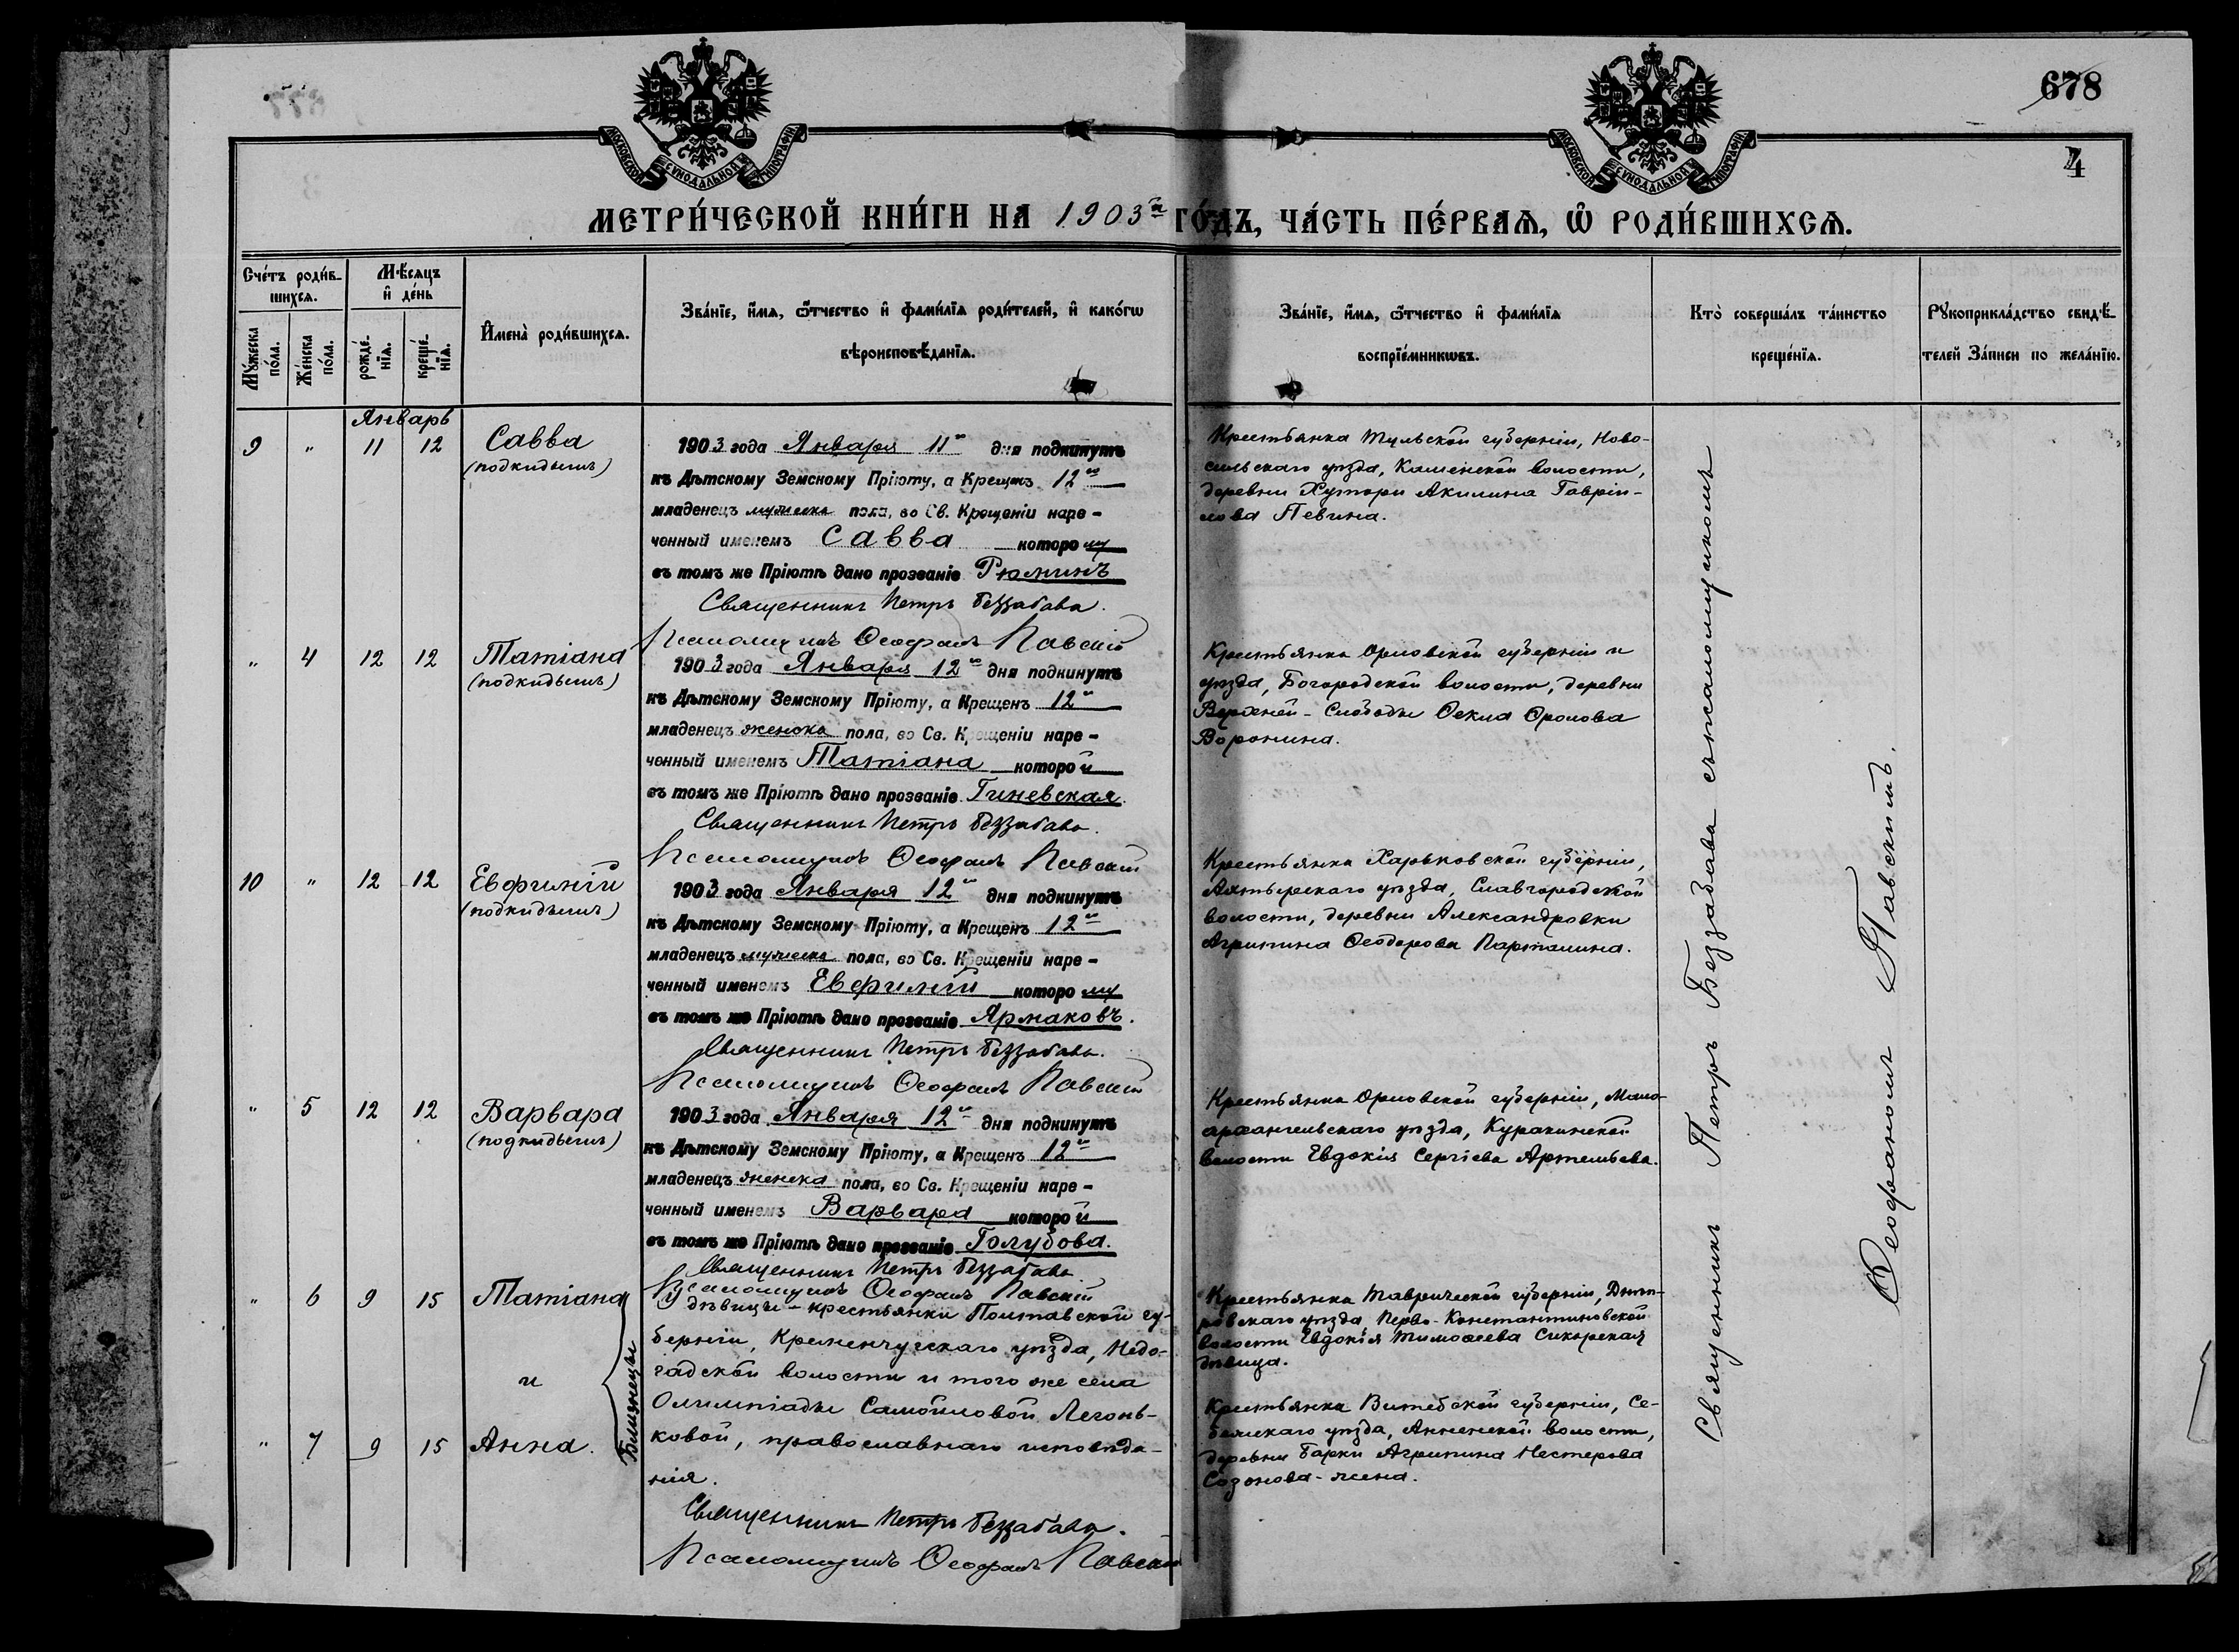 678
4
МОСКОВСКОЙ СѴНОДАЛЬНОЙ ТИПОГРАФІИ
МОСКОВСКОЙ СѴНОДАЛЬНОЙ ТИПОГРАФІИ
МЕТРИ́ЧЕСКОЙ КНИ́ГИ НА 1903й ГО́ДЪ, ЧА́СТЬ ПЕ́РВАѦ, Ѡ РОДИ́ВШИХСѦ.
Сче́тъ роди́в-
шихсѧ.
Мѣ́сѧцъ
и҆ де́нь
Мꙋ́жеска по́ла.
Же́нска по́ла.
рожде́-
нїѧ.
креще́-
нїѧ.
И҆мена̀ роди́вшихсѧ.
Зва́нїе, и҆́мѧ, ѻ҆́тчество и҆ фами́лїѧ роди́телей, и҆ како́гѡ
вѣроисповѣ́данїѧ.
Зва́нїе, и҆́мѧ, ѻ҆́тчество и҆ фами́лїѧ
воспрїе́мникѡвъ.
Кто̀ соверша́лъ та́инство
креще́нїѧ.
Рꙋкоприкла́дство свидѣ́-
телей За́писи по жела́нїю.
Январь
9 " 11 12 Савва
(подкидышъ)
1903 года Января 11го дня подкинутъ
къ Дѣтскому Земскому Пріюту, а Крещенъ 12го
младенецъ мужеска пола, во Св. Крещеніи наре-
ченный именемъ Савва которому
въ томъ же Пріютѣ дано прозваніе Рюминъ
Священникъ Петръ Беззабава.
Псаломщикъ Ѳеофанъ Павскій
Крестьянка Тульской губерніи, Ново-
сильскаго уѣзда, Каменской волости,
деревни Хутори Акилина Гаврiи-
лова Певина.
" 4 12 12 Татіана
(подкидышъ)
1903 года Января 12го дня подкинутъ
къ Дѣтскому Земскому Пріюту, а Крещенъ 12го
младенецъ женска пола, во Св. Крещеніи наре-
ченный именемъ Татіана которой
въ томъ же Пріютѣ дано прозваніе Гиневская.
Священникъ Петръ Беззабава.
Псаломщикъ Ѳеофанъ Павскій
Крестьянка Орловской губерніи и
уѣзда, Богородской волости, деревни
Верхней-Слободы Ѳекла Фролова
Воронина.
10 " 12 12 Евфимій
(подкидышъ)
1903 года Января 12го дня подкинутъ
къ Дѣтскому Земскому Пріюту, а Крещенъ 12го
младенецъ мужеска пола, во Св. Крещеніи наре-
ченный именемъ Евфимій которому
въ томъ же Пріютѣ дано прозваніе Ярмаковъ.
Священникъ Петръ Беззабава.
Псаломщикъ Ѳеофанъ Павскій
Крестьянка Харьковской губерніи,
Ахтырскаго уѣзда, Славгородской
волости, деревни Александровки
Агрипина Ѳеодорова Парталина.
" 5 12 12 Варвара
(подкидышъ)
1903 года Января 12го дня подкинутъ
къ Дѣтскому Земскому Пріюту, а Крещенъ 12го
младенецъ женска пола, во Св. Крещеніи наре-
ченный именемъ Варвара которой
въ томъ же Пріютѣ дано прозваніе Голубова.
Священникъ Петръ Беззабава
Псаломщикъ Ѳеофанъ Павскій
Крестьянка Орловской губерніи, Мало-
архангельскаго уѣзда, Куракинской
волости Евдокія Сергіева Артемьева.
" 6 9 15 Татіана
и
" 7 9 15 Анна.
Близнецы
У дѣвицы-крестьянки Полтавской гу-
берніи, Кременчугскаго уѣзда, Недо-
гадской волости и того же села
Олимпіады Самойловой Легонь-
ковой, православнаго исповѣда-
нія.
Священникъ Петръ Беззабава.
Псаломщикъ Ѳеофанъ Павскій
Крестьянка Таврической губерніи, Днѣп-
ровскаго уѣзда, Перво-Константиновской
волости Евдокія Тимоѳеева Сикорская
дѣвица.
Крестьянка Витебской губерніи, Се-
бежскаго уѣзда, Анненской волости,
деревни Барки Агрипина Нестерова
Созонова-жена.
Священникъ Петръ Беззабава съ псаломщикомъ
Ѳеофаномъ Павскимъ.